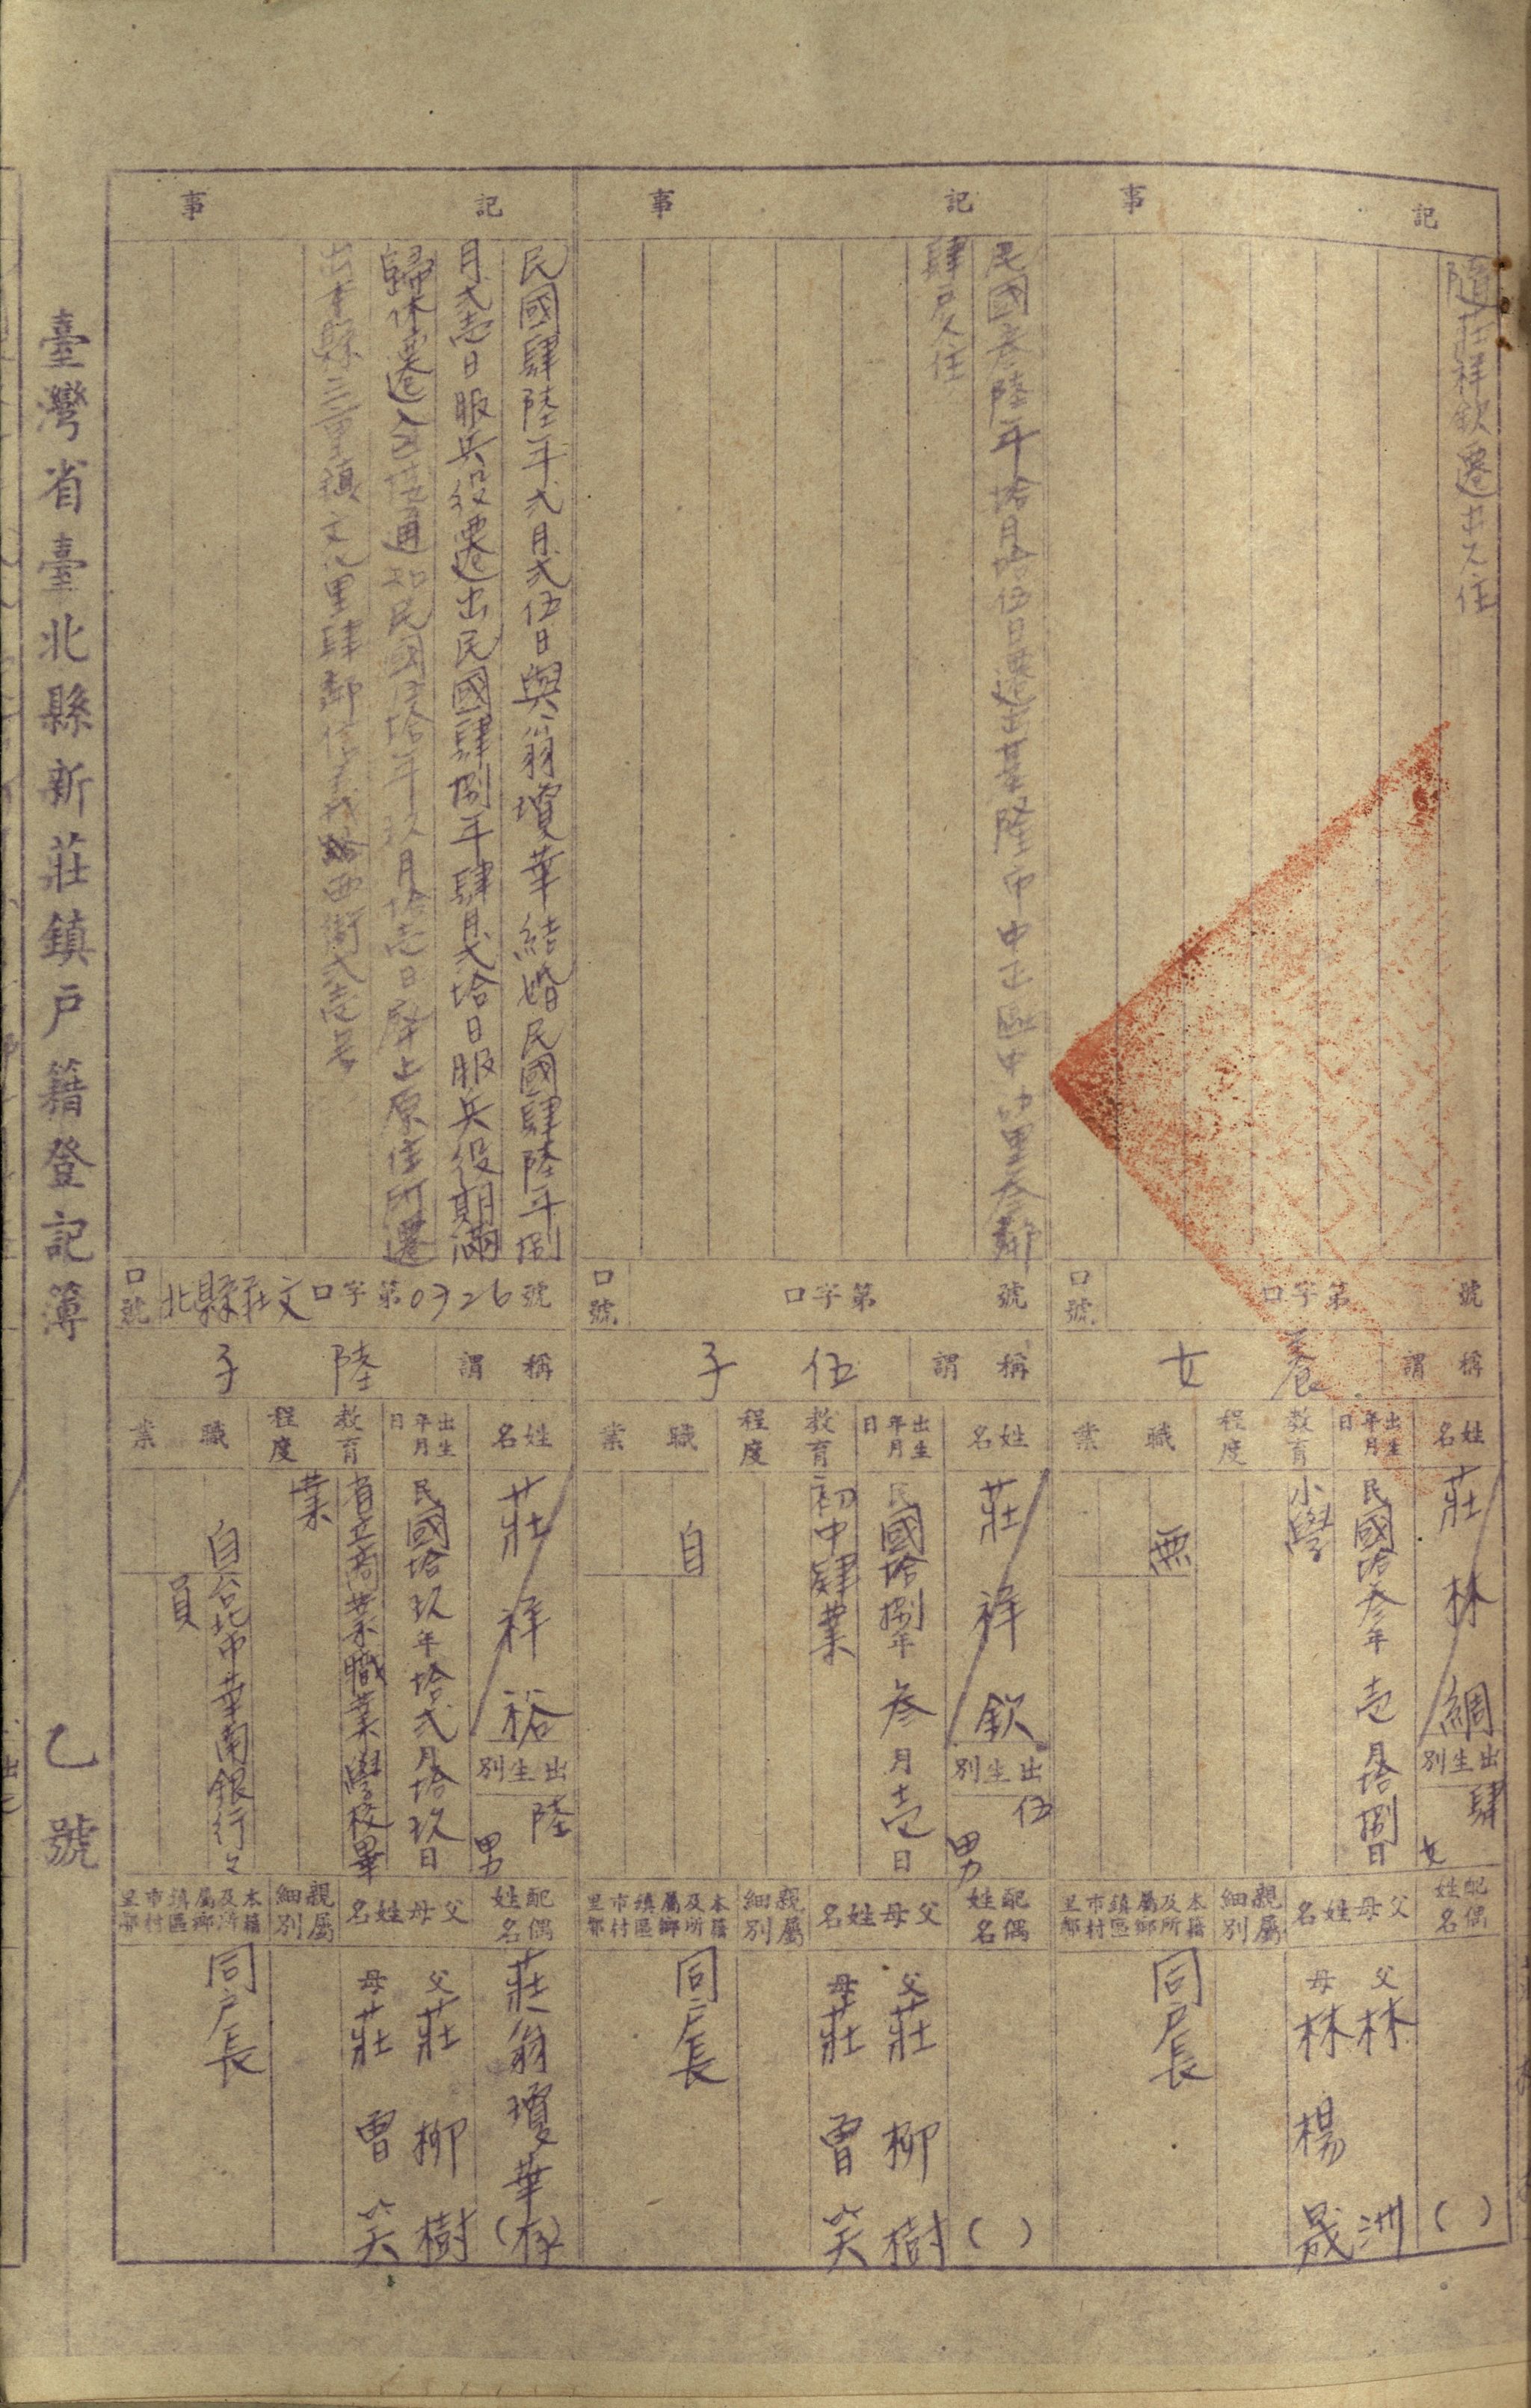 記事
隨莊祥欽遷出久住
口號
字第口號
稱謂
養女
姓名
莊林綢
出生別
肆女
出生年月日
民國拾叁年壱月拾捌日
教育程度
小學
職業
無
配偶姓名
( )
父母姓名
父林洲
母林楊晟
親屬細別
本籍及所屬鄉鎮區市村里鄰
同戶長
記事
民國叁陸年拾月拾伍日遷出基隆市中正區中山里叁鄰
肆戶久住
口號
字第口號
稱謂
伍子
姓名
莊祥欽
出生別
伍男
出生年月日
民國拾捌年叁月壱日
教育程度
初中肄業
職業
自
配偶姓名
( )
父母姓名
父莊柳樹
母莊曾笑
親屬細別
本籍及所屬鄉鎮區市村里鄰
同戶長
記事
民國肆陸年弍月弍伍日與翁瓊華結婚民國肆陸年捌
月弍壱日服兵役遷出民國肆捌年肆月弍拾日服兵役期滿
歸休遷入通知民國伍拾年玖月拾壱日原住所遷
出本縣三重鎮文化里肆鄰信義西街弍壱号
口號
北縣莊文字第0326號
稱謂
陸子
姓名
莊祥裕
出生別
陸男
出生年月日
民國拾玖年拾弍月拾玖日
教育程度
省立商業職業學校畢
業
職業
自台北市華南銀行
員
配偶姓名
莊翁瓊華(存)
父母姓名
父莊柳樹
母莊曾笑
親屬細別
本籍及所屬鄉鎮區市村里鄰
同戶長
臺灣省臺北縣新莊鎮戶籍登記簿 乙號